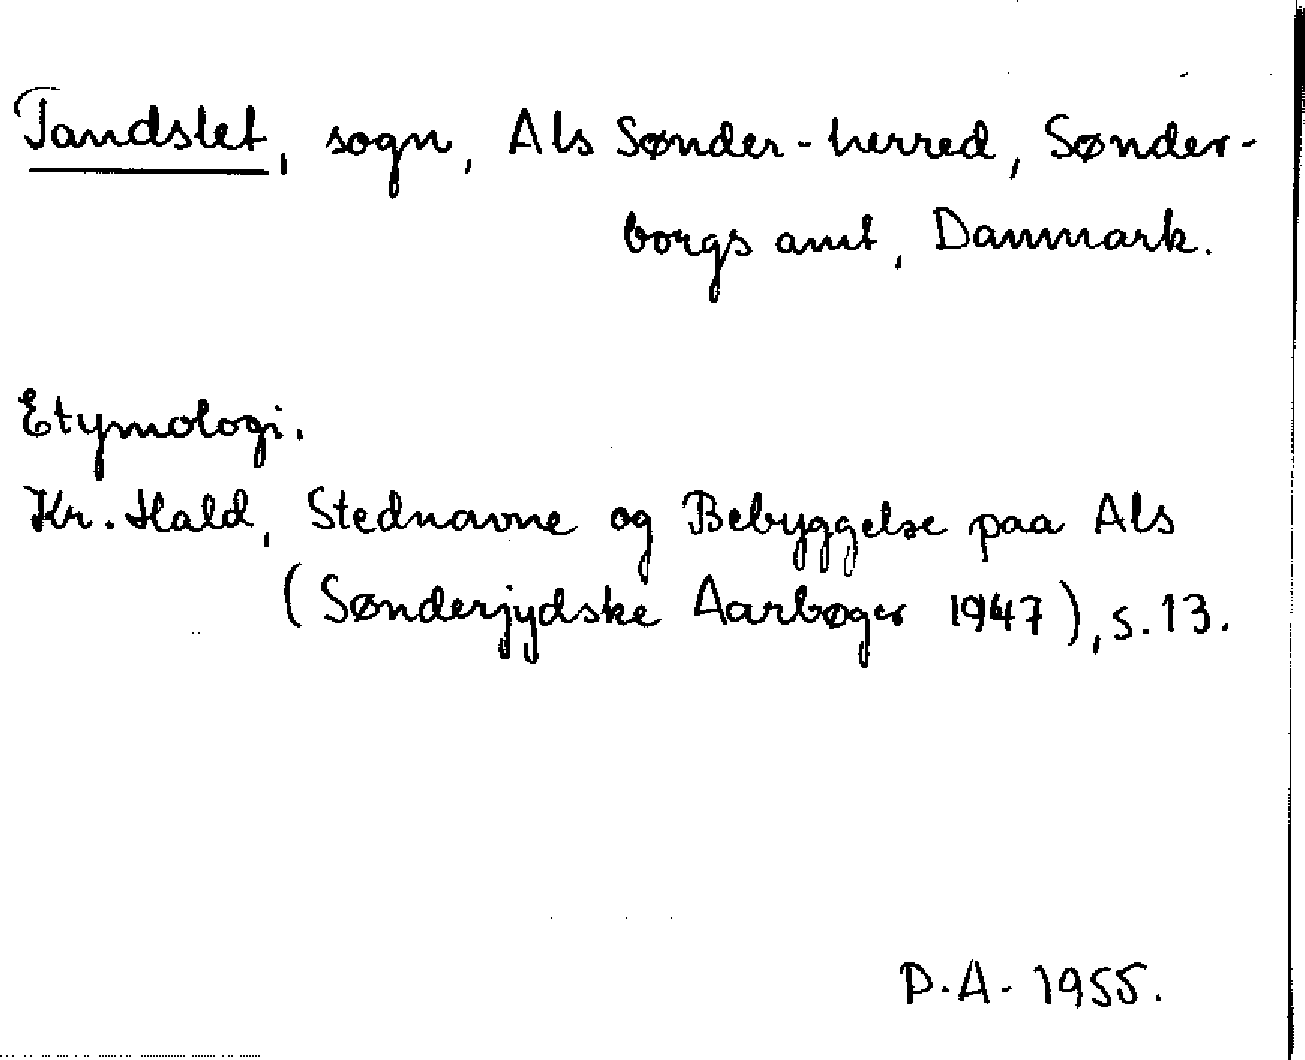 Tandslet, sogn, Als Sønder-herred, Sønder-
borgs amt, Danmark.
Etymologi.
Kr. Hald, Stednavne og Bebyggelse paa Als
(Sønderjydske Aarbøger 1947), s. 13.
P.A. 1955.